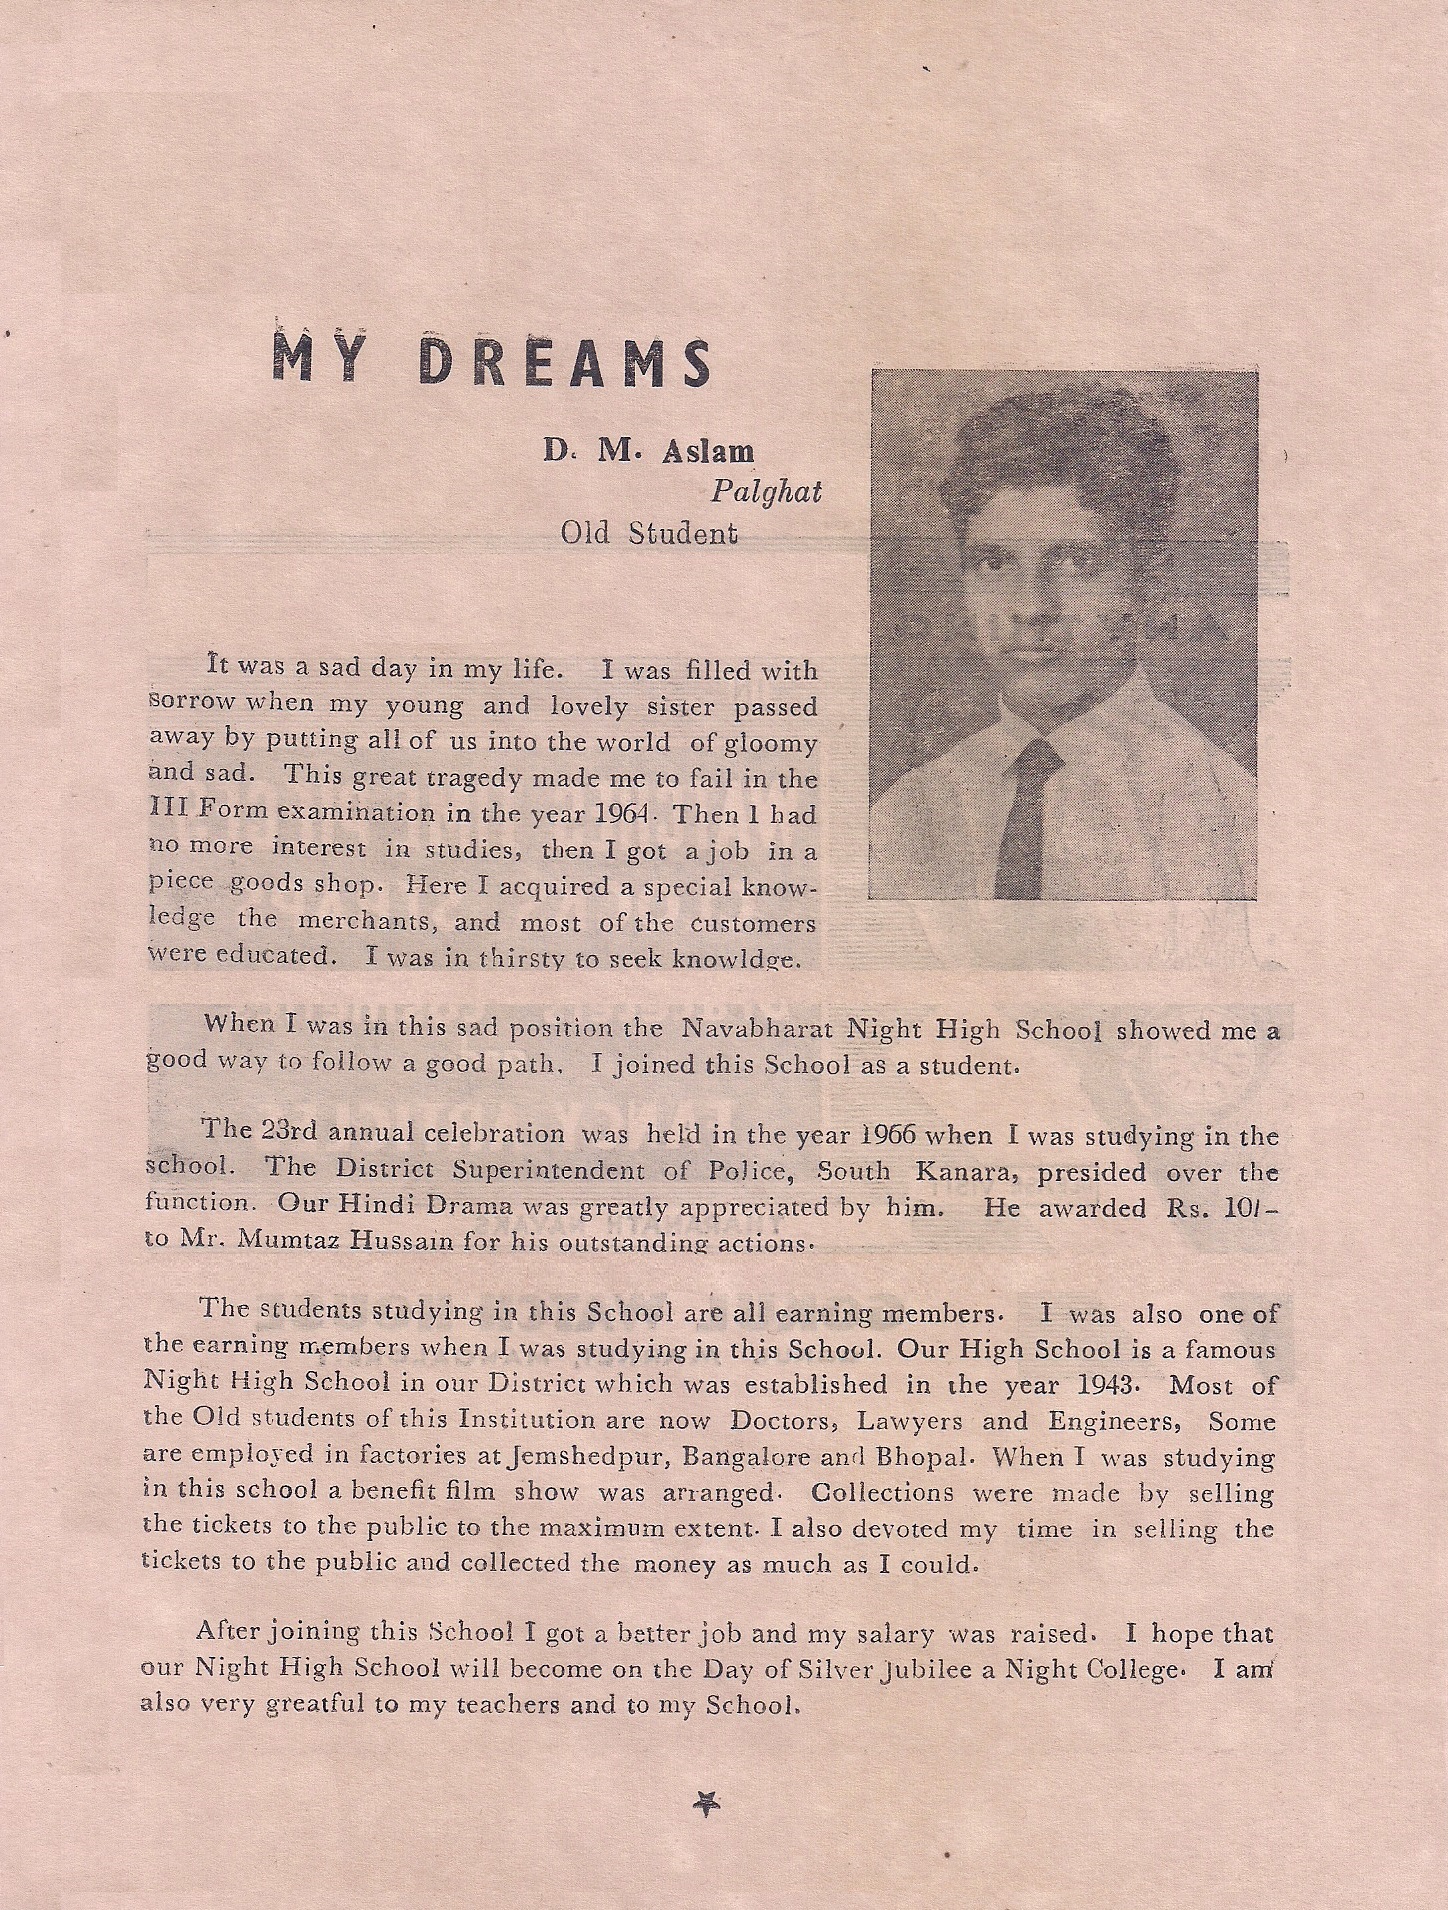 MY DREAMS
D. M. Aslam
Palghat
Old Student
It was a sad day in my life. I was filled with
sorrow when my young and lovely sister passed
away by putting all of us into the world of gloomy
and sad. This great tragedy made me to fail in the
III Form examination in the year 1964. Then I had
no more interest in studies, then I got a job in a
piece goods shop. Here I acquired a special know-
ledge the merchants, and most of the customers
were educated. I was in thirsty to seek knowldge.
When I was in this sad position the Navabharat Night High School showed me a
good way to follow a good path. I joined this School as a student.
The 23rd annual celebration was held in the year 1966 when I was studying in the
school. The District Superintendent of Police, South Kanara, presided over the
function. Our Hindi Drama was greatly appreciated by him. He awarded Rs. 10/-
to Mr. Mumtaz Hussain for his outstanding actions.
The students studying in this School are all earning members. I was also one of
the earning members when I was studying in this School. Our High School is a famous
Night High School in our District which was established in the year 1943. Most of
the Old students of this Institution are now Doctors, Lawyers and Engineers, Some
are employed in factories at Jemshedpur, Bangalore and Bhopal. When I was studying
in this school a benefit film show was arranged. Collections were made by selling
the tickets to the public to the maximum extent. I also devoted my time in selling the
tickets to the public and collected the money as much as I could.
After joining this School I got a better job and my salary was raised. I hope that
our Night High School will become on the Day of Silver Jubilee a Night College. I am
also very greatful to my teachers and to my School.